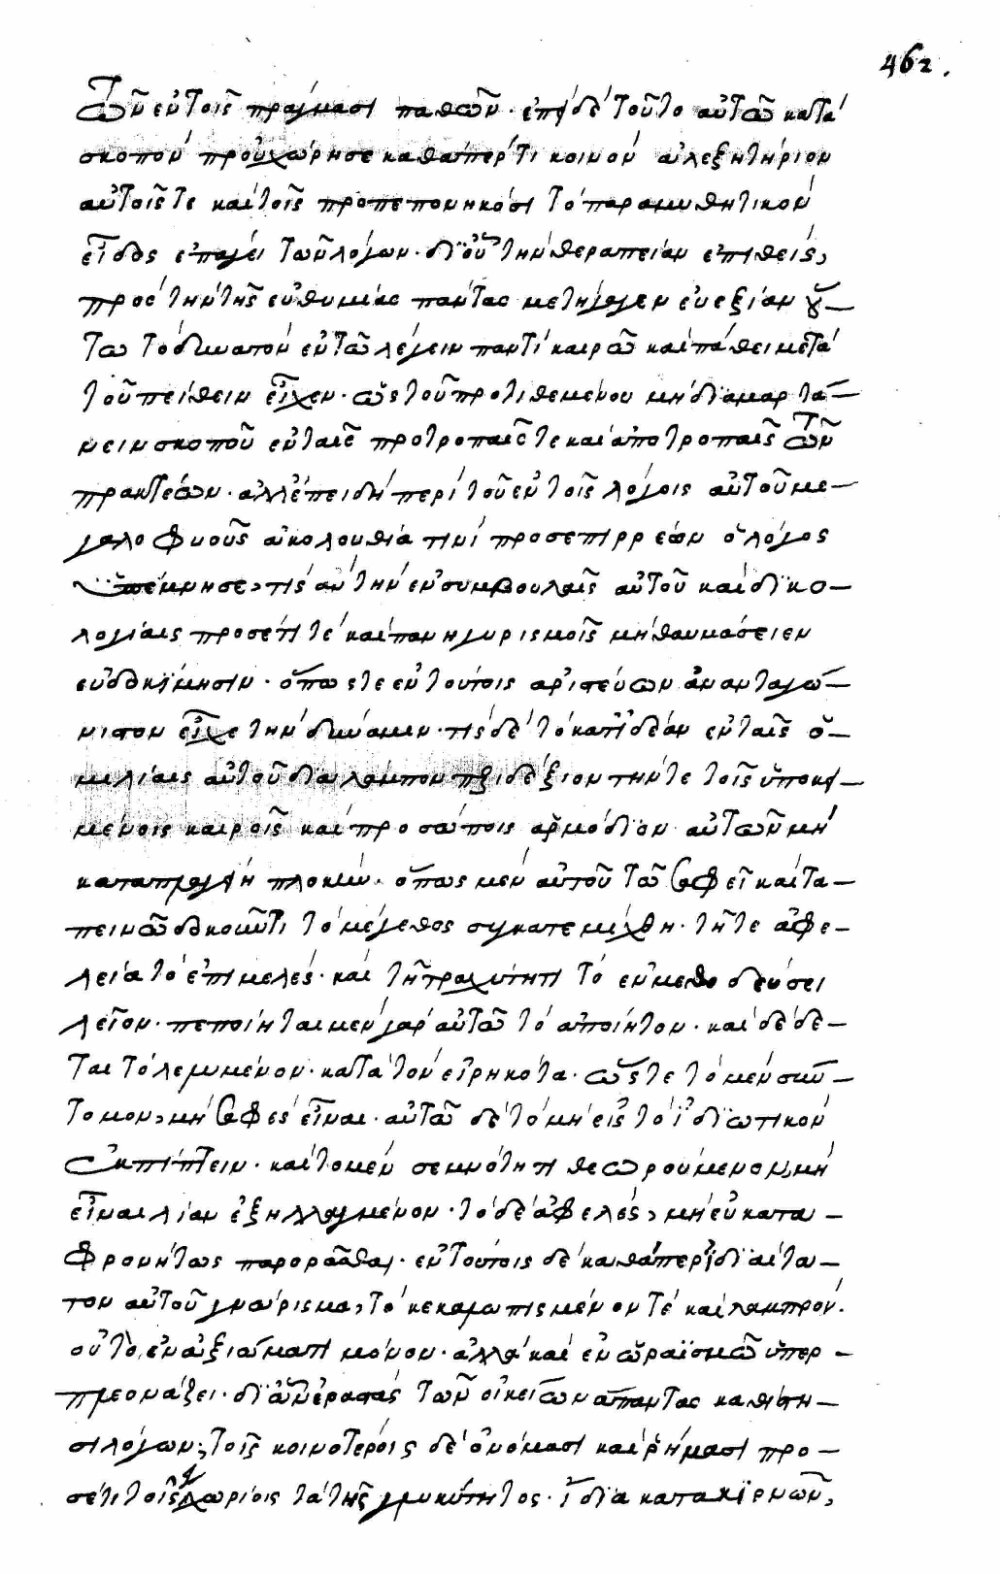 462.
τῶν ἐν τοῖς πράγμασι παθῶν· ἐπεὶ δὲ τοῦτο αὐτῷ κατὰ
σκοπὸν προὐχώρησε καθάπερ τι κοινὸν ἀλεξητήριον
αὐτοῖς τε καὶ τοῖς προπεπονηκόσι τὸ παραμυθητικὸν
εἶδος ἐπάγει τῶν λόγων· δι' οὗ τὴν θεραπείαν ἐπιθεὶς,
πρὸς τὴν τῆς εὐθυμίας πάντας μετήγαγεν εὐεξίαν οὕ–
τω τὸ δυνατὸν ἐν τῷ λέγειν παντὶ καιρῷ καὶ πάθει μετὰ
τοῦ πείθειν εἶχεν· ὡς τοῦ προτιθεμένου μὴ διαμαρτά–
νειν σκοποῦ ἐν ταῖς προτροπαῖς τε καὶ ἀποτροπαῖς τῶν
πρακτέων· ἀλλ' ἐπειδὴ περὶ τοῦ ἐν τοῖς λόγοις αὐτοῦ με–
γαλοφυοῦς ἀκολουθία τινὶ προσεπιρρέων ὁ λόγος
ὑπέμνησε, τίς ἂν τὴν ἐν συμβουλαῖς αὐτοῦ καὶ δικο–
λογίαις προσέτι τὲ καὶ πανηγυρισμοῖς μὴ θαυμάσειεν
εὐδοκίμησιν· ὅπως τε ἐν τούτοις ἀριστεύων ἀνανταγώ–
νιστον εἶχε τὴν δύναμιν· τίς δὲ τὸ κατ' ἰδέαν ἐν ταῖς ὁ–
μιλίαις αὐτοῦ διαλάμπον περιδέξιον τήν τε τοῖς ὑποκει–
μένοις καιροῖς καὶ προσώποις ἁρμόδιον αὐτῶν μὴ
καταπλαγείη πλοκήν· ὅπως μὲν αὐτοῦ τῷ σαφεῖ καὶ τα–
πεινῷ δοκοῦντι τὸ μέγεθος συγκατεμίχθη· τῇ τε ἀφε–
λείᾳ τὸ ἐπιμελές· καὶ τῇ τραχύτητι τὸ ἐν μεθοδεύσει
λεῖον· πεποίηται μὲν γὰρ αὐτῷ τὸ ἀποίητον· καὶ δέδε–
ται τὸ λελυμένον· κατὰ τὸν εἰρηκότα· ὥς τε τὸ μὲν σύν–
τομον, μὴ σαφὲς εἶναι· αὐτῷ δὲ τὸ μὴ εἰς τὸ ἰδιωτικὸν
ἐκπίπτειν· καὶ τὸ μὲν σεμνότητι θεωρούμενον, μὴ
εἶναι λίαν ἐξηλλαγμένον· τὸ δὲ ἀφελές, μὴ εὐκατα–
φρονήτως παρορᾶσθαι· ἐν τούτοις δὲ καθάπερ ἰδιαίτα–
τον αὐτοῦ γνώρισμα, τὸ κεκαλλωπισμένον τὲ καὶ λαμπρόν.
οὐ τὸ, ἐν ἀξιώματι μόνον· ἀλλὰ καὶ ἐν ὡραϊσμῷ ὑπερ–
πλεονάζει· δι' ὧν ἐραστὰς τῶν οἰκείων ἅπαντας καθίστη–
σι λόγων; τοῖς κοινοτέροις δὲ ὀνόμασι καὶ ῥήμασι προ–
σέτι τοῖς χωρίοις τὰ τῆς γλυκύτητος· ἴδια κατακιρνῶν,